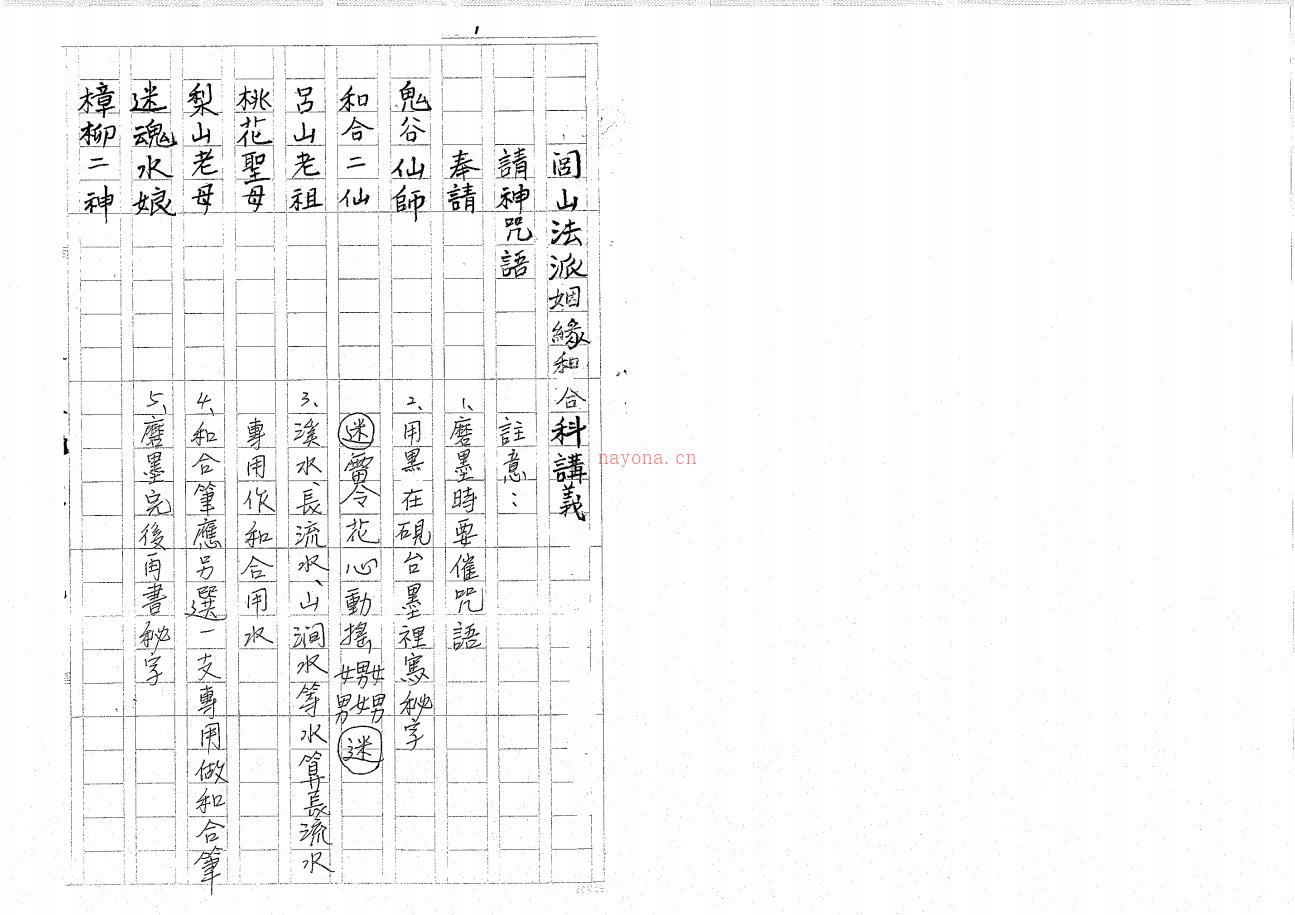 1
閭山法派姻緣和合科講義
請神咒語
奉請
鬼谷仙師
和合二仙
呂山老祖
桃花聖母
梨山老母
迷魂水娘
樟柳二神
註意：
1、磨墨時要催咒語
2、用黑在硯台墨裡寫秘字
迷雷令花心動搖
女男女
男女男
迷
3、溪水、長流水、山澗水等水算長流水
專用作和合用水
4、和合筆應另選一支專用做和合筆
5、磨墨完後再書秘字
nayona.cn